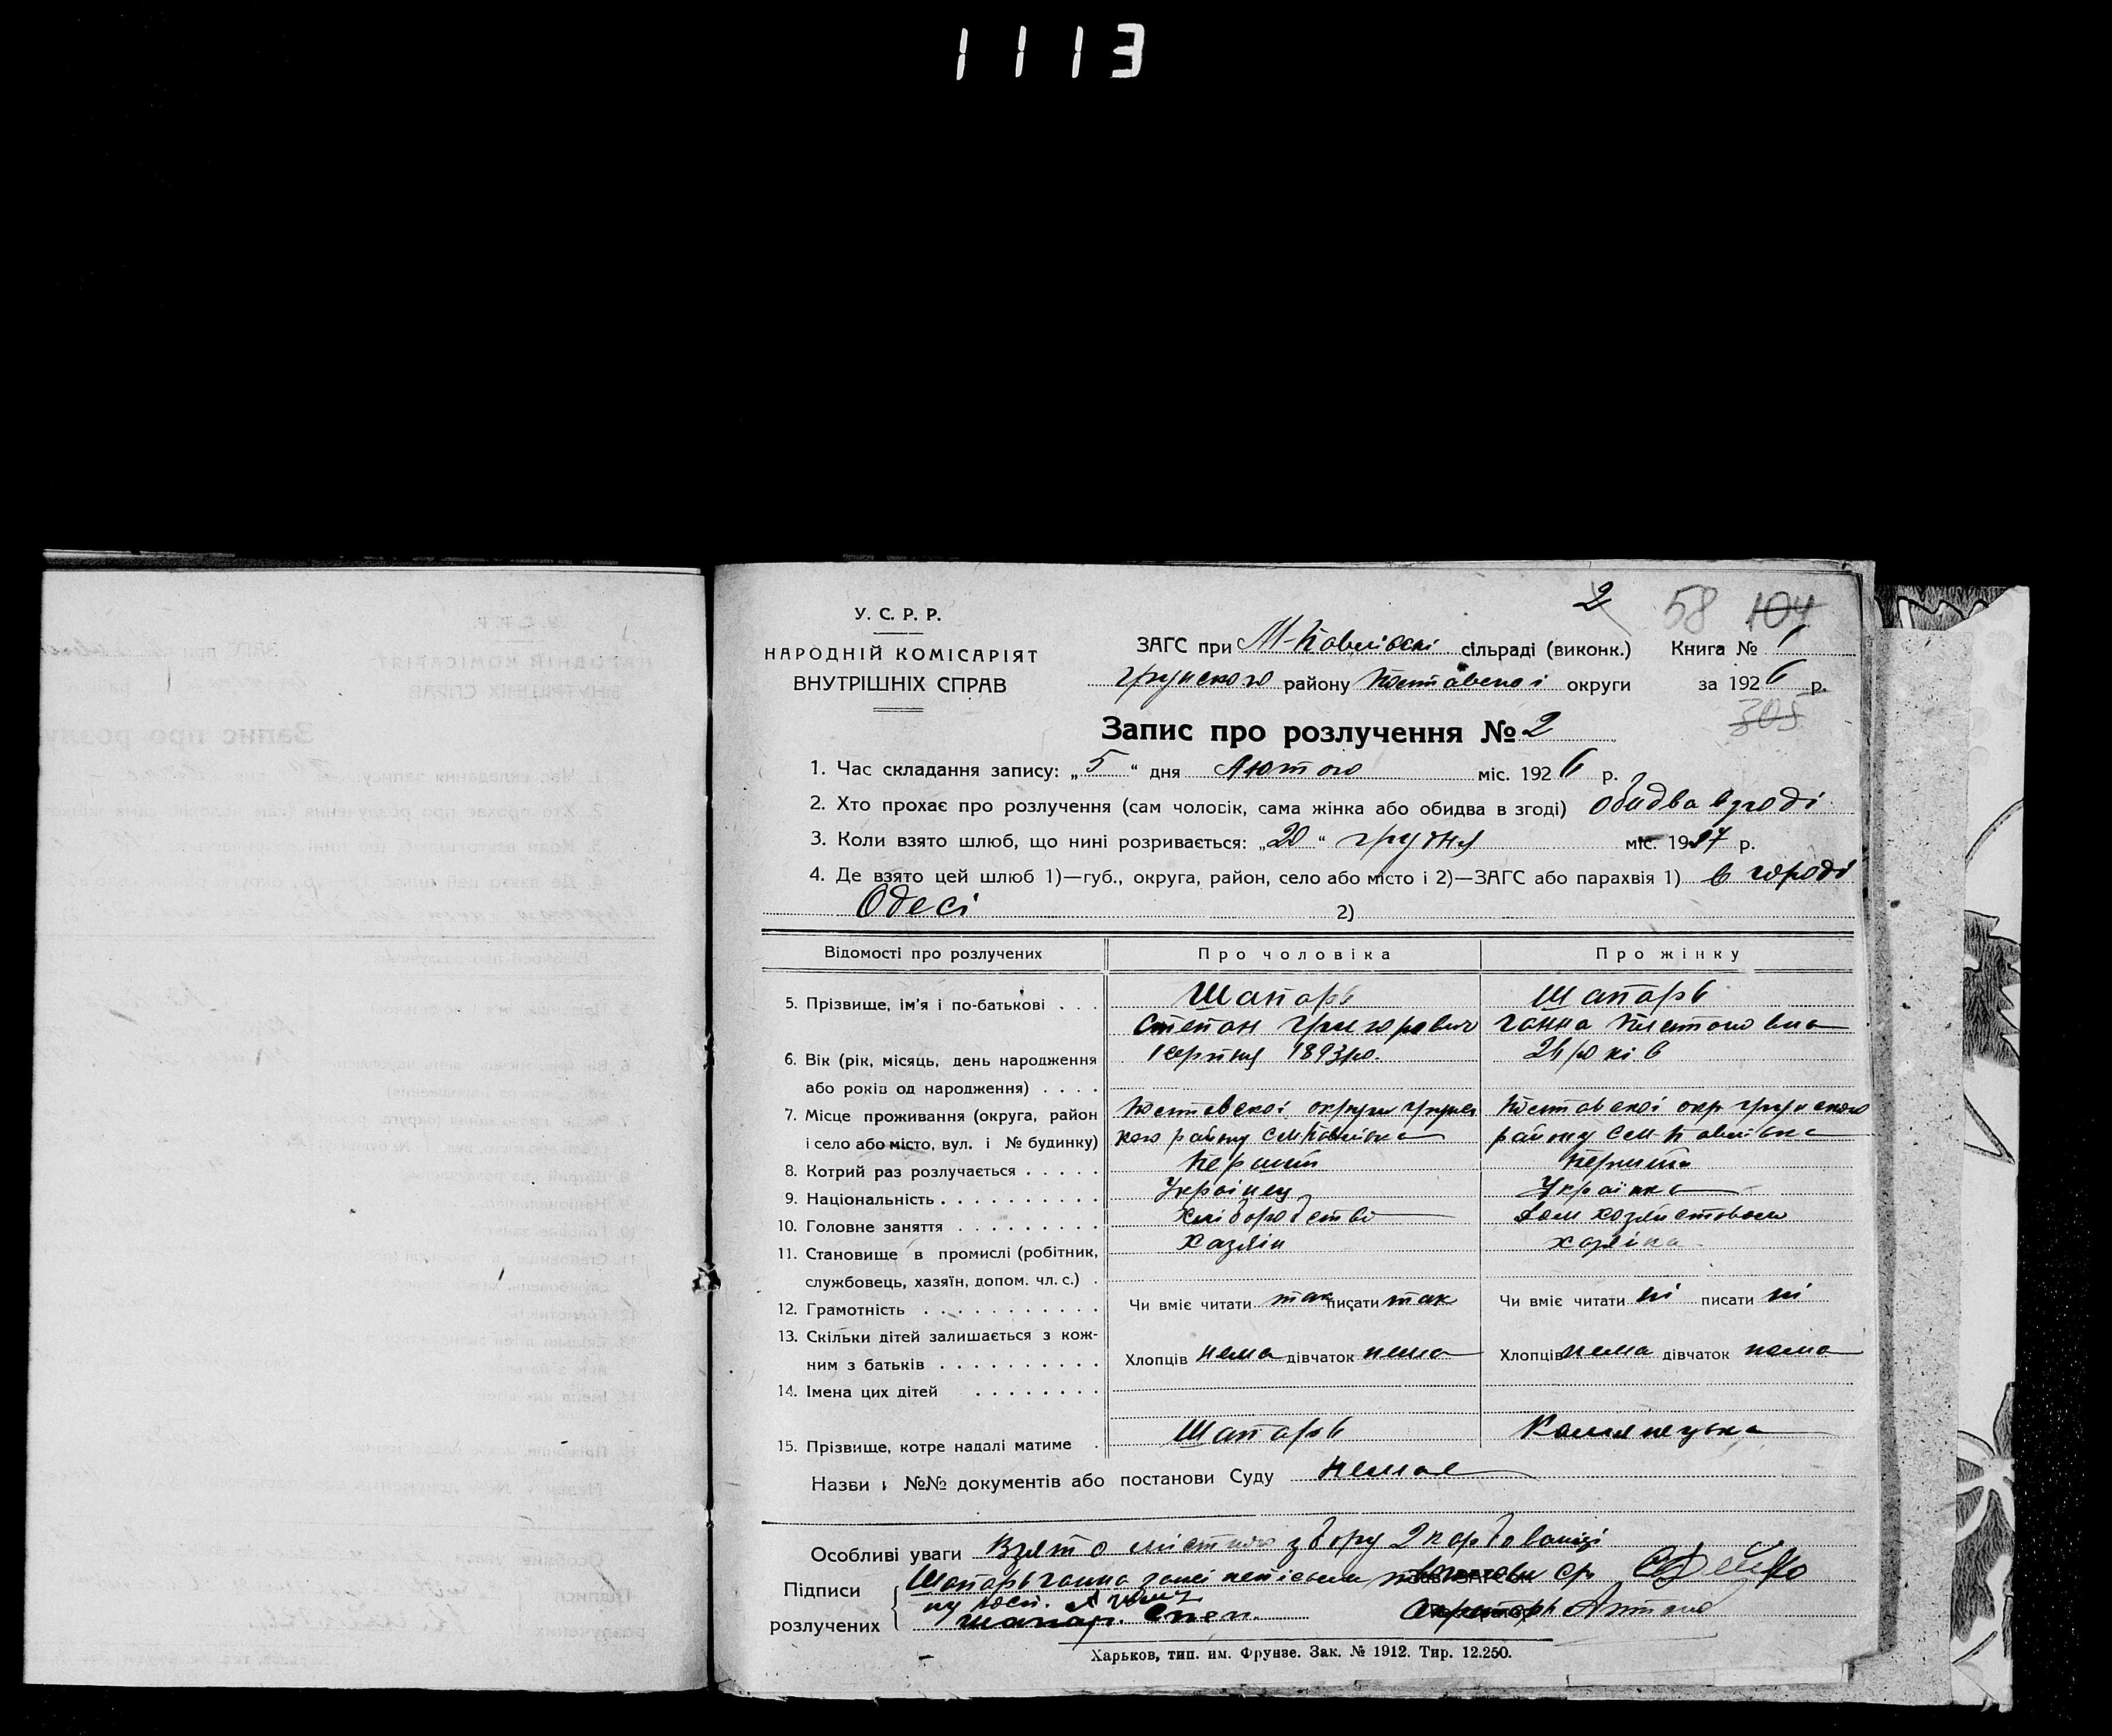 1113
2 58 104
У. С. Р. Р.
НАРОДНІЙ КОМІСАРІЯТ
ВНУТРІШНІХ СПРАВ
ЗАГС при М-Павлівскі сільраді (виконк.) Книга № 1
Грунского району Полтавскої округи за 1926 р.
305
Запис про розлучення № 2
1. Час складання запису: „5“ дня Лютого міс. 1926 р.
2. Хто прохає про розлучення (сам чоловік, сама жінка або обидва в згоді) обидва в згоді
3. Коли взято шлюб, що нині розривається: „20“ грудня міс. 1917 р.
4. Де взято цей шлюб 1)—губ., округа, район, село або місто і 2)—ЗАГС або парахвія 1) в городі
Одесі 2)
Відомості про розлучених Про чоловіка Про жінку
5. Прізвище, ім'я і по-батькові . . . Шапарь Шапарь
Степан Григорович Ганна
6. Вік (рік, місяць, день народження 1 серпня 1893 р. 26 років
або років од народження) . . . .
7. Місце проживання (округа, район Полтавскої округи Грунсь Полтавскої окр Грунского
і село або місто, вул. і № будинку) кого району С М Павлівка району С М Павлівка
8. Котрий раз розлучається . . . . . Перший Перший
9. Національність . . . . . . . . . . Українец Українка
10. Головне заняття . . . . . . . . . Хліборобство Дом хозяйством
11. Становище в промислі (робітник, Хазяін хазяйка
службовець, хазяїн, допом. чл. с.) .
12. Грамотність . . . . . . . . . . . Чи вміє читати так писати так Чи вміє читати ні писати ні
13. Скільки дітей залишається з кож-
ним з батьків . . . . . . . . . . Хлопців нема дівчаток нема Хлопців нема дівчаток нема
14. Імена цих дітей . . . . . . . .
15. Прізвище, котре надалі матиме . Шапарь Камянецька
Назви і №№ документів або постанови Суду немае
Особливі уваги Взято містного збору 2 карбованці
Підписи Шапарь Ганна
розлучених Шапар. Степ. Секретарь
Харьков, тип. им. Фрунзе. Зак. № 1912. Тир. 12.250.